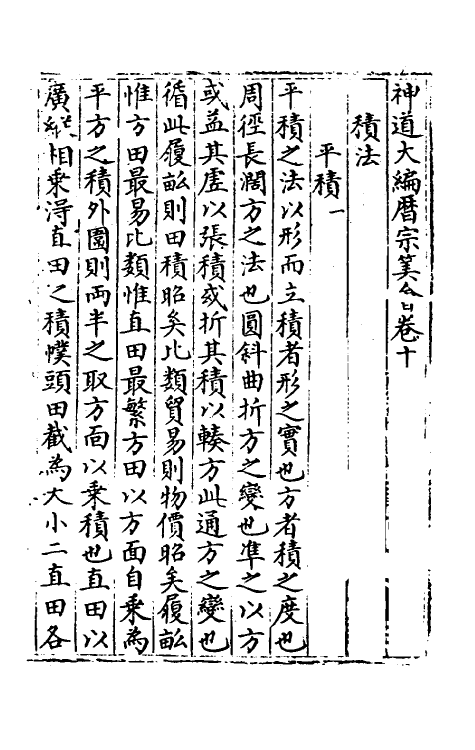 神道大編曆宗筭會卷十
積法
平積一
平積之法以形而立積者形之實也方者積之度也
周徑長濶方之法也圓斜曲折方之變也凖之以方
或益其虗以張積或折其積以輳方此通方之變也
循此履畝則田積昭矣比類貿易則物價昭矣履畝
惟方田最易比類惟直田最繁方田以方面自乘為
平方之積外圍則両半之取方面以乘積也直田以
廣縱相乘淂直田之積幞頭田截為大小二直田各